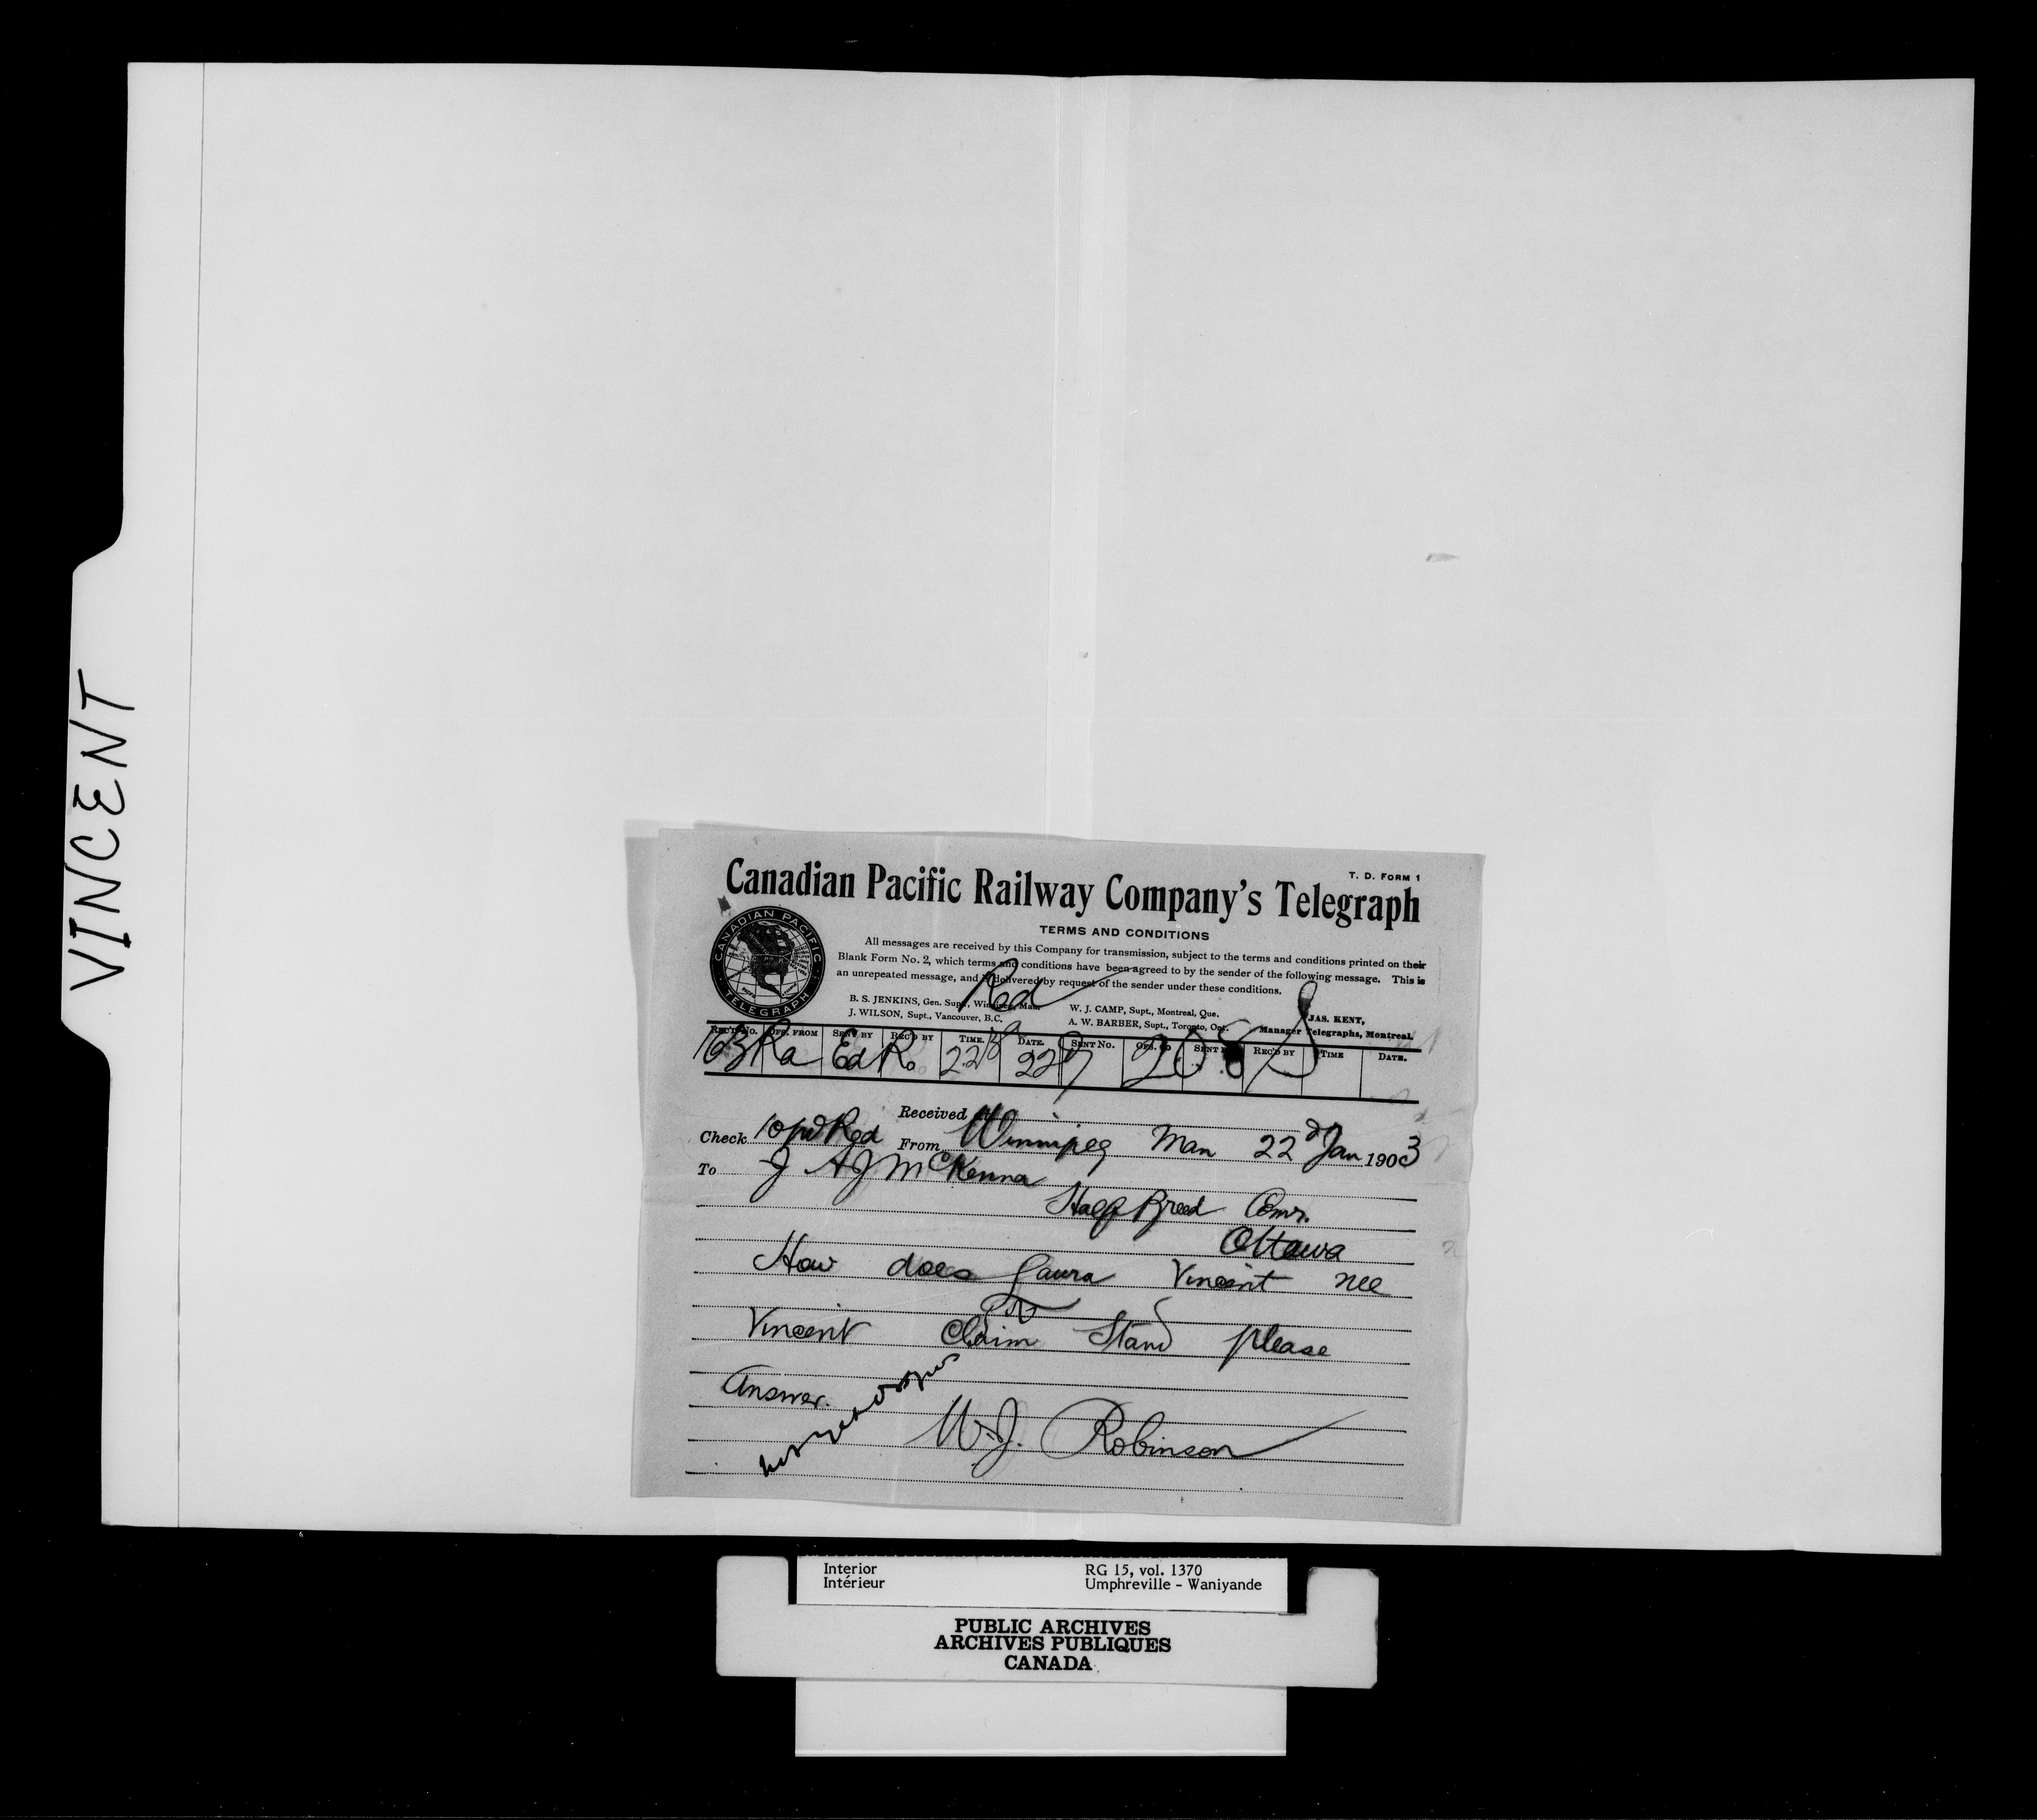 VINCENT
T. D. FORM 1
Canadian Pacific Railway Company's Telegraph
CANADIAN PACIFIC TELEGRAPH
TERMS AND CONDITIONS
All messages are received by this Company for transmission, subject to the terms and conditions printed on their
Blank Form No. 2, which terms and conditions have been agreed to by the sender of the following message. This is
an unrepeated message, and is delivered by request of the sender under these conditions.
Red
B. S. JENKINS, Gen. Supt., Winnipeg, Man.
J. WILSON, Supt., Vancouver, B.C.
W. J. CAMP, Supt., Montreal, Que.
A. W. BARBER, Supt., Toronto, Ont.
JAS. KENT,
Manager Telegraphs, Montreal.
REC'D NO. OFS. FROM SENT BY REC'D BY TIME. DATE. SENT NO. OFS. TO SENT BY REC'D BY TIME DATE.
163 Ra Ed R. 22
Received at
Check 10 pd Red From Winnipeg Man 22d Jan 1903
To J A J McKenna
Half Breed Comr.
Ottawa
How does Laura Vincent nee
Vincent Claim Stand please
Answer.
W. J. Robinson
Interior
Intérieur
RG 15, vol. 1370
Umphreville - Waniyande
PUBLIC ARCHIVES
ARCHIVES PUBLIQUES
CANADA